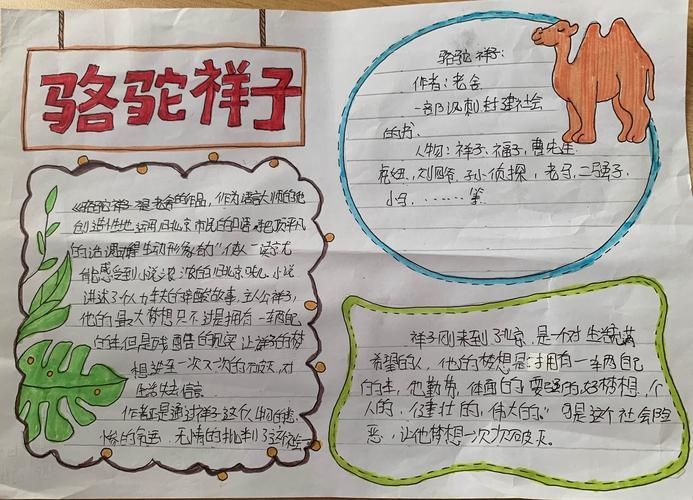 骆驼祥子
《骆驼祥子》是老舍的作品，作为语言大师的他
创造性地运用旧北京市民的口语，把顶平凡
的话调
能感受到小说浓浓的旧京味儿。小说
讲述了个人力车夫的辛酸故事。主人公祥子，
他的最大梦想只不过是拥有一车两自己
的车，但是残酷的现实让祥子的梦
想
生活失去信言
作者正是通过祥子这个人物的悲
惨的命运，无情的批判了这个
骆驼祥子：
作者：老舍
一部讽刺封建社会
的书、
人物：祥子、福子，曹先生
虎妞、刘四爷，孙小侦探，老马，二强子，
小马，……等
祥子刚来到了北京，是一个对生活充满
希望的人，他的梦想是拥有一车两自己
的车，他勤劳，体面的，要强的，好梦想，个
人的，健壮的，伟大的。可是这个社会险
恶，让他梦想一次次破灭。